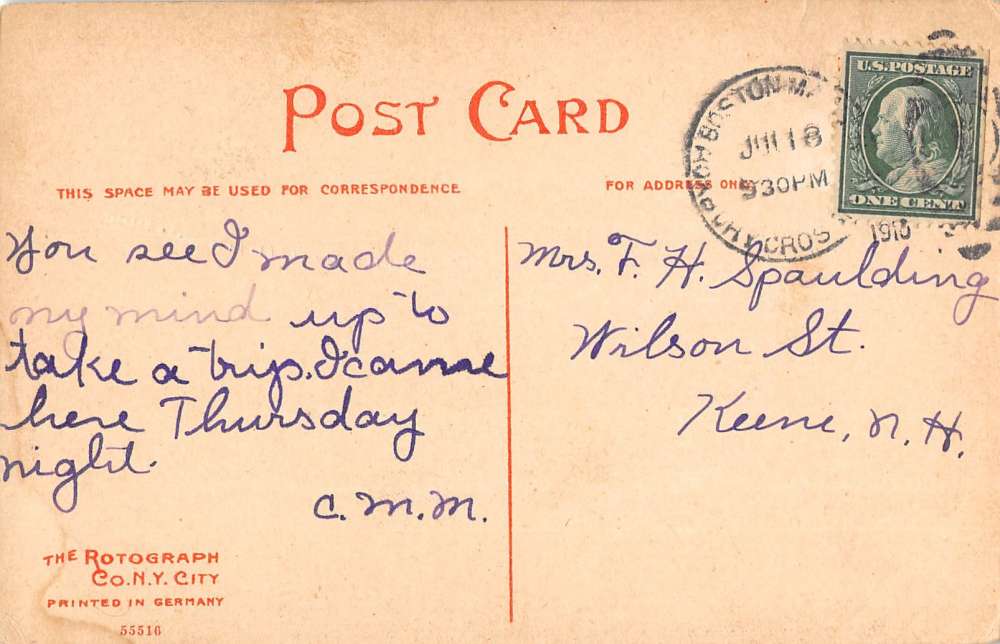 POST CARD
THIS SPACE MAY BE USED FOR CORRESPONDENCE
FOR ADDRESS ONLY
BOSTON MA
JUN 18
930PM
1910
U.S. POSTAGE
ONE CENT
You see I made
my mind up to
take a trip. I came
here Thursday
night.
C. M. M.
Mrs. F. H. Spaulding
Wilson St.
Keene, N. H.
THE ROTOGRAPH
CO. N.Y. CITY
PRINTED IN GERMANY
55516